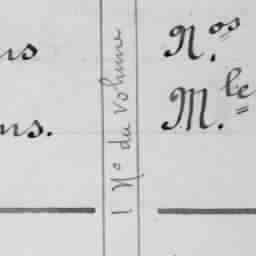 ns
ns.
N° du volume
N.os
M.le